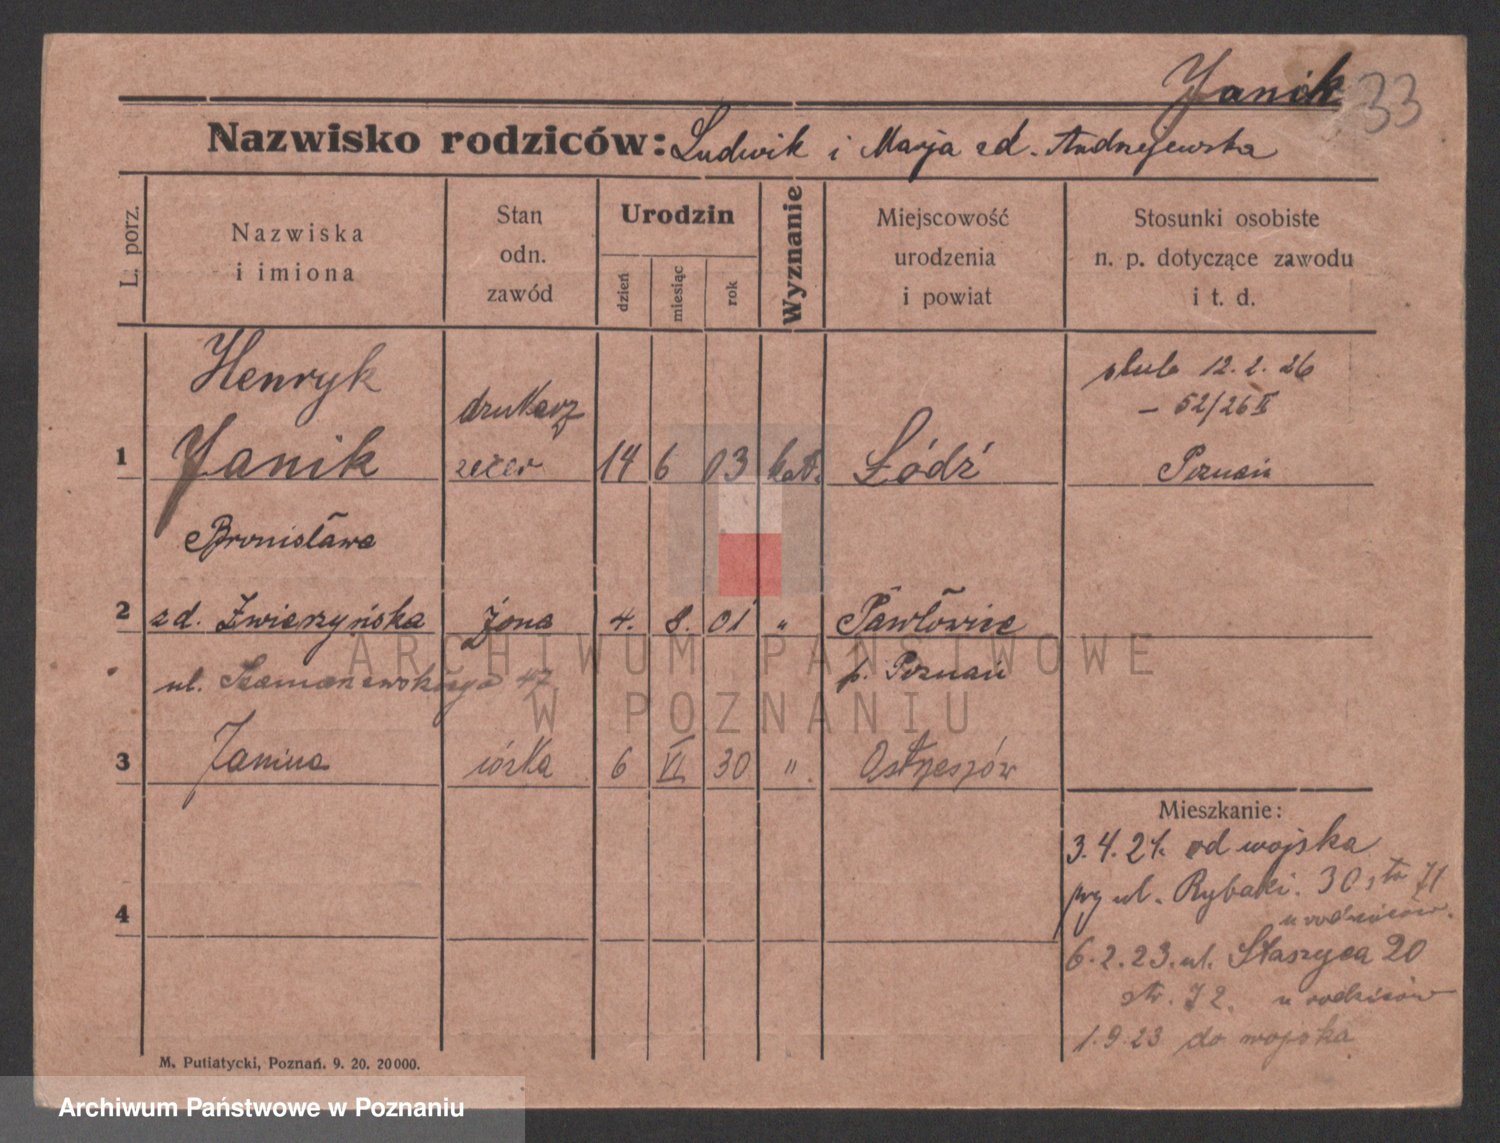 Janik 33
Nazwisko rodziców: Ludwik i Marja zd. Andrzejewska
L. porz.
Nazwiska
i imiona
Stan
odn.
zawód
Urodzin
dzień
miesiąc
rok
Wyznanie
Miejscowość
urodzenia
i powiat
Stosunki osobiste
n. p. dotyczące zawodu
i t. d.
Henryk
1 Janik drukarz
zecer 14 6 03 kat. Łódź
ślub 12.2.26
– 52/26 II
Poznań
Bronisława
2 zd. Zwierzyńska żona 4. 8. 01 " Pawłowice
p. Poznań
ul. 47
3 Janina córka 6 VI 30 " Ostrzeszów
4
Mieszkanie:
3.4.21. od wojska
przy ul. Rybaki. 30, str 71
u rodziców.
6.2.23. ul. Staszyca 20
str. 72. u rodziców
1.9.23 do wojska
M. Putiatycki, Poznań. 9. 20. 20000.
ARCHIWUM PAŃSTWOWE
W POZNANIU
Archiwum Państwowe w Poznaniu